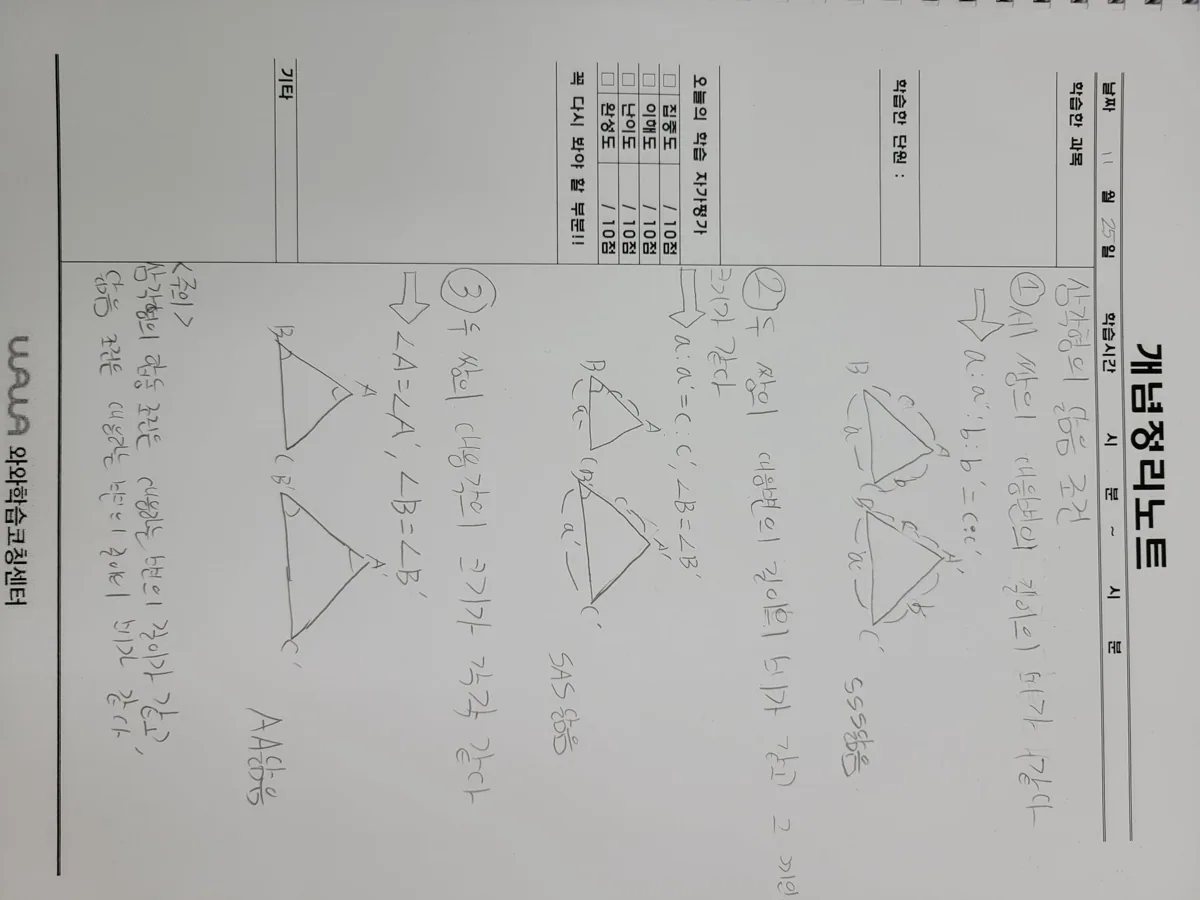 개념정리노트
날짜 11 월 25 일 학습시간 시 분 ~ 시 분
학습한 과목
학습한 단원 :
오늘의 학습 자가평가
□ 집중도 / 10점
□ 이해도 / 10점
□ 난이도 / 10점
□ 완성도 / 10점
꼭 다시 봐야 할 부분!!
기타
삼각형의 닮음 조건
① 세 쌍의 대응변의 길이의 비가 같다
⇨ a:a':b:b'=c:c'
A
B
C
c
b
a
A'
B'
C'
c'
b'
a'
SSS닮음
② 두 쌍의 대응변의 길이의 비가 같고 그 끼인
크기가 같다
⇨ a:a'=c:c', ∠B=∠B'
A
B
C
c
a
A'
B'
C'
c'
a'
SAS닮음
③ 두 쌍의 대응각의 크기가 각각 같다
⇨ ∠A=∠A', ∠B=∠B'
A
B
C
A'
B'
C'
AA닮음
<주의>
삼각형의 합동 조건은 대응하는 변의 길이가 같고,
닮음 조건은 대응하는 변의 길이의 비가 같다
WAWA 와와학습코칭센터